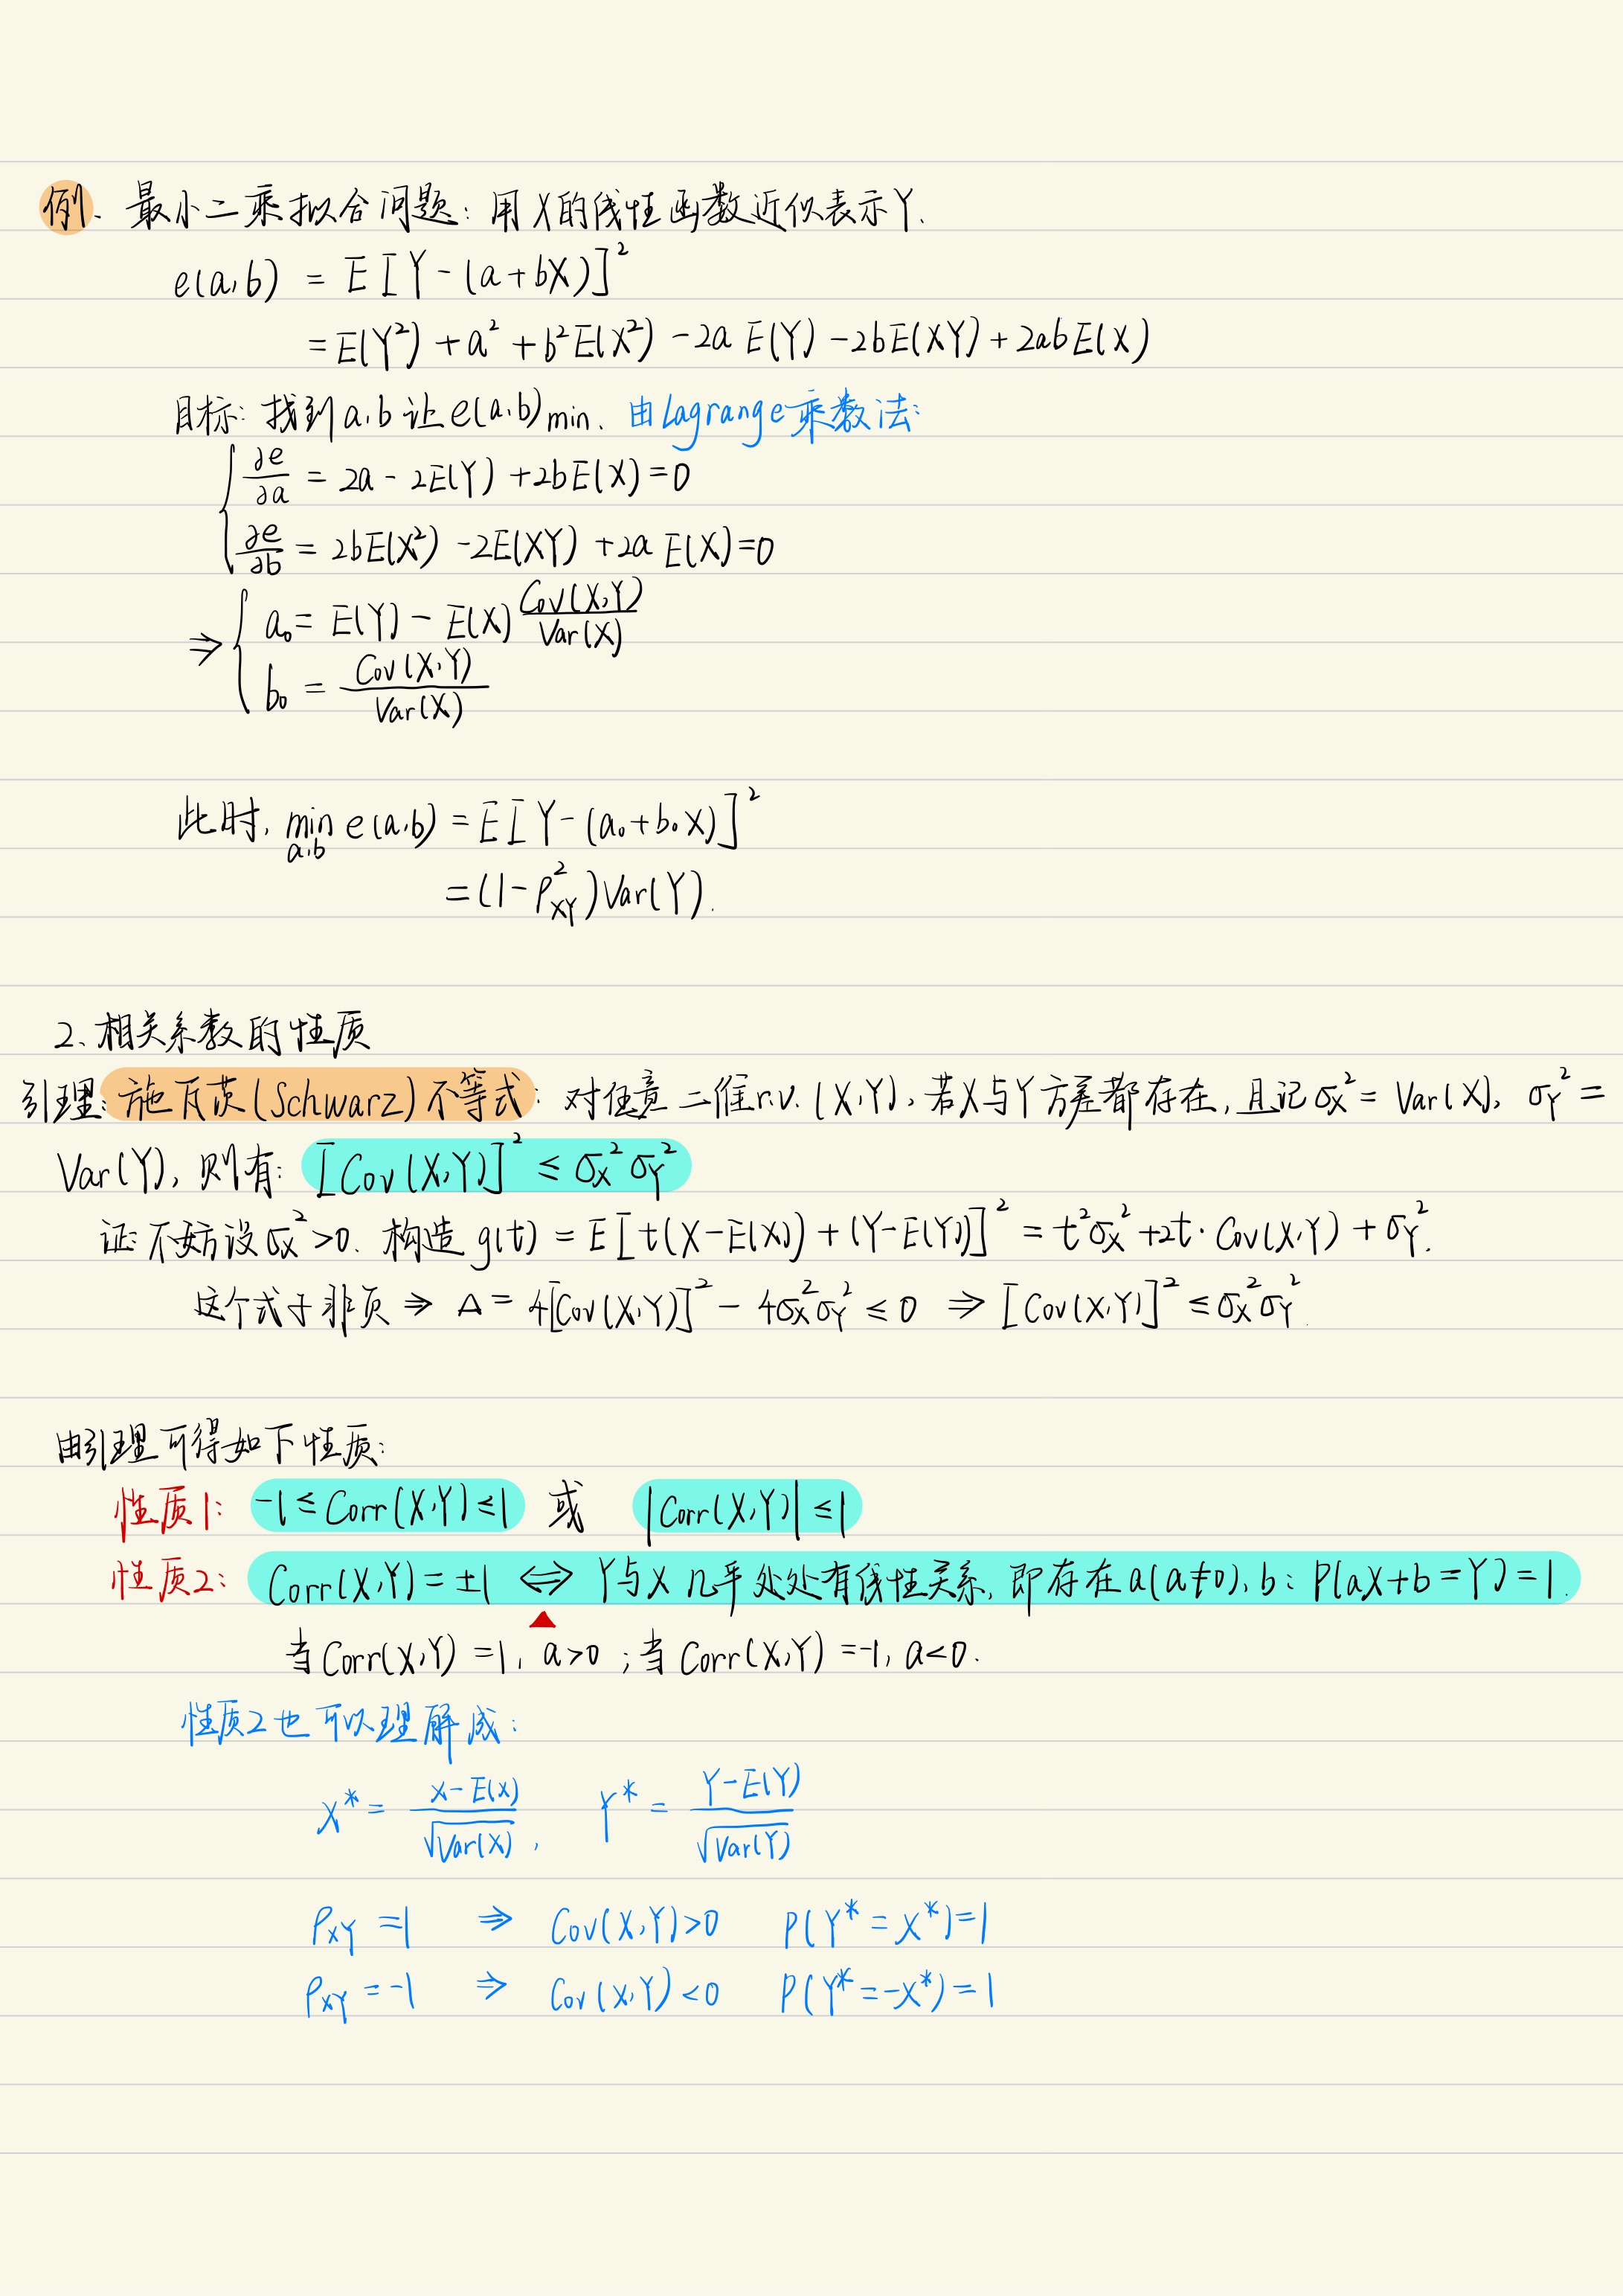 例、最小二乘拟合问题：用X的线性函数近似表示Y.
e(a,b) = E[Y-(a+bX)]²
= E(Y²) + a² + b²E(X²) - 2aE(Y) - 2bE(XY) + 2abE(X)
目标：找到a,b让e(a,b)min、由Lagrange乘数法：
{ ∂e/∂a = 2a - 2E(Y) + 2bE(X) = 0
∂e/∂b = 2bE(X²) - 2E(XY) + 2aE(X) = 0
⇒ { a₀ = E(Y) - E(X) Cov(X,Y)/Var(X)
b₀ = Cov(X,Y)/Var(X)
此时, min_{a,b} e(a,b) = E[Y-(a₀+b₀X)]²
= (1-ρ²_{XY})Var(Y).
2、相关系数的性质
引理：施瓦茨(Schwarz)不等式：对任意二维r.v.(X,Y), 若X与Y方差都存在, 且记σ_X² = Var(X), σ_Y² =
Var(Y), 则有：[Cov(X,Y)]² ≤ σ_X²σ_Y²
证：不妨设σ_X²>0. 构造g(t) = E[t(X-E(X))+(Y-E(Y))]² = t²σ_X²+2t·Cov(X,Y)+σ_Y².
这个式子非负 ⇒ Δ = 4[Cov(X,Y)]² - 4σ_X²σ_Y² ≤ 0 ⇒ [Cov(X,Y)]² ≤ σ_X²σ_Y².
由引理可得如下性质：
性质1：-1 ≤ Corr(X,Y) ≤ 1 或 |Corr(X,Y)| ≤ 1
性质2：Corr(X,Y) = ±1 ⇔ Y与X几乎处处有线性关系, 即存在a(a≠0), b：P(aX+b=Y)=1.
当Corr(X,Y)=1, a>0；当Corr(X,Y)=-1, a<0.
性质2也可以理解成：
X* = (X-E(X))/√Var(X), Y* = (Y-E(Y))/√Var(Y)
ρ_{XY} = 1 ⇒ Cov(X,Y)>0 P(Y*=X*)=1
ρ_{XY} = -1 ⇒ Cov(X,Y)<0 P(Y*=-X*)=1